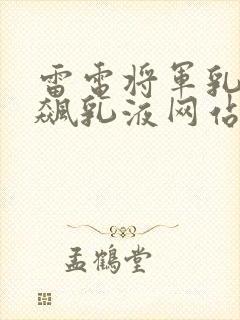 雷電将軍乳
飆乳液网佔
孟鶴堂